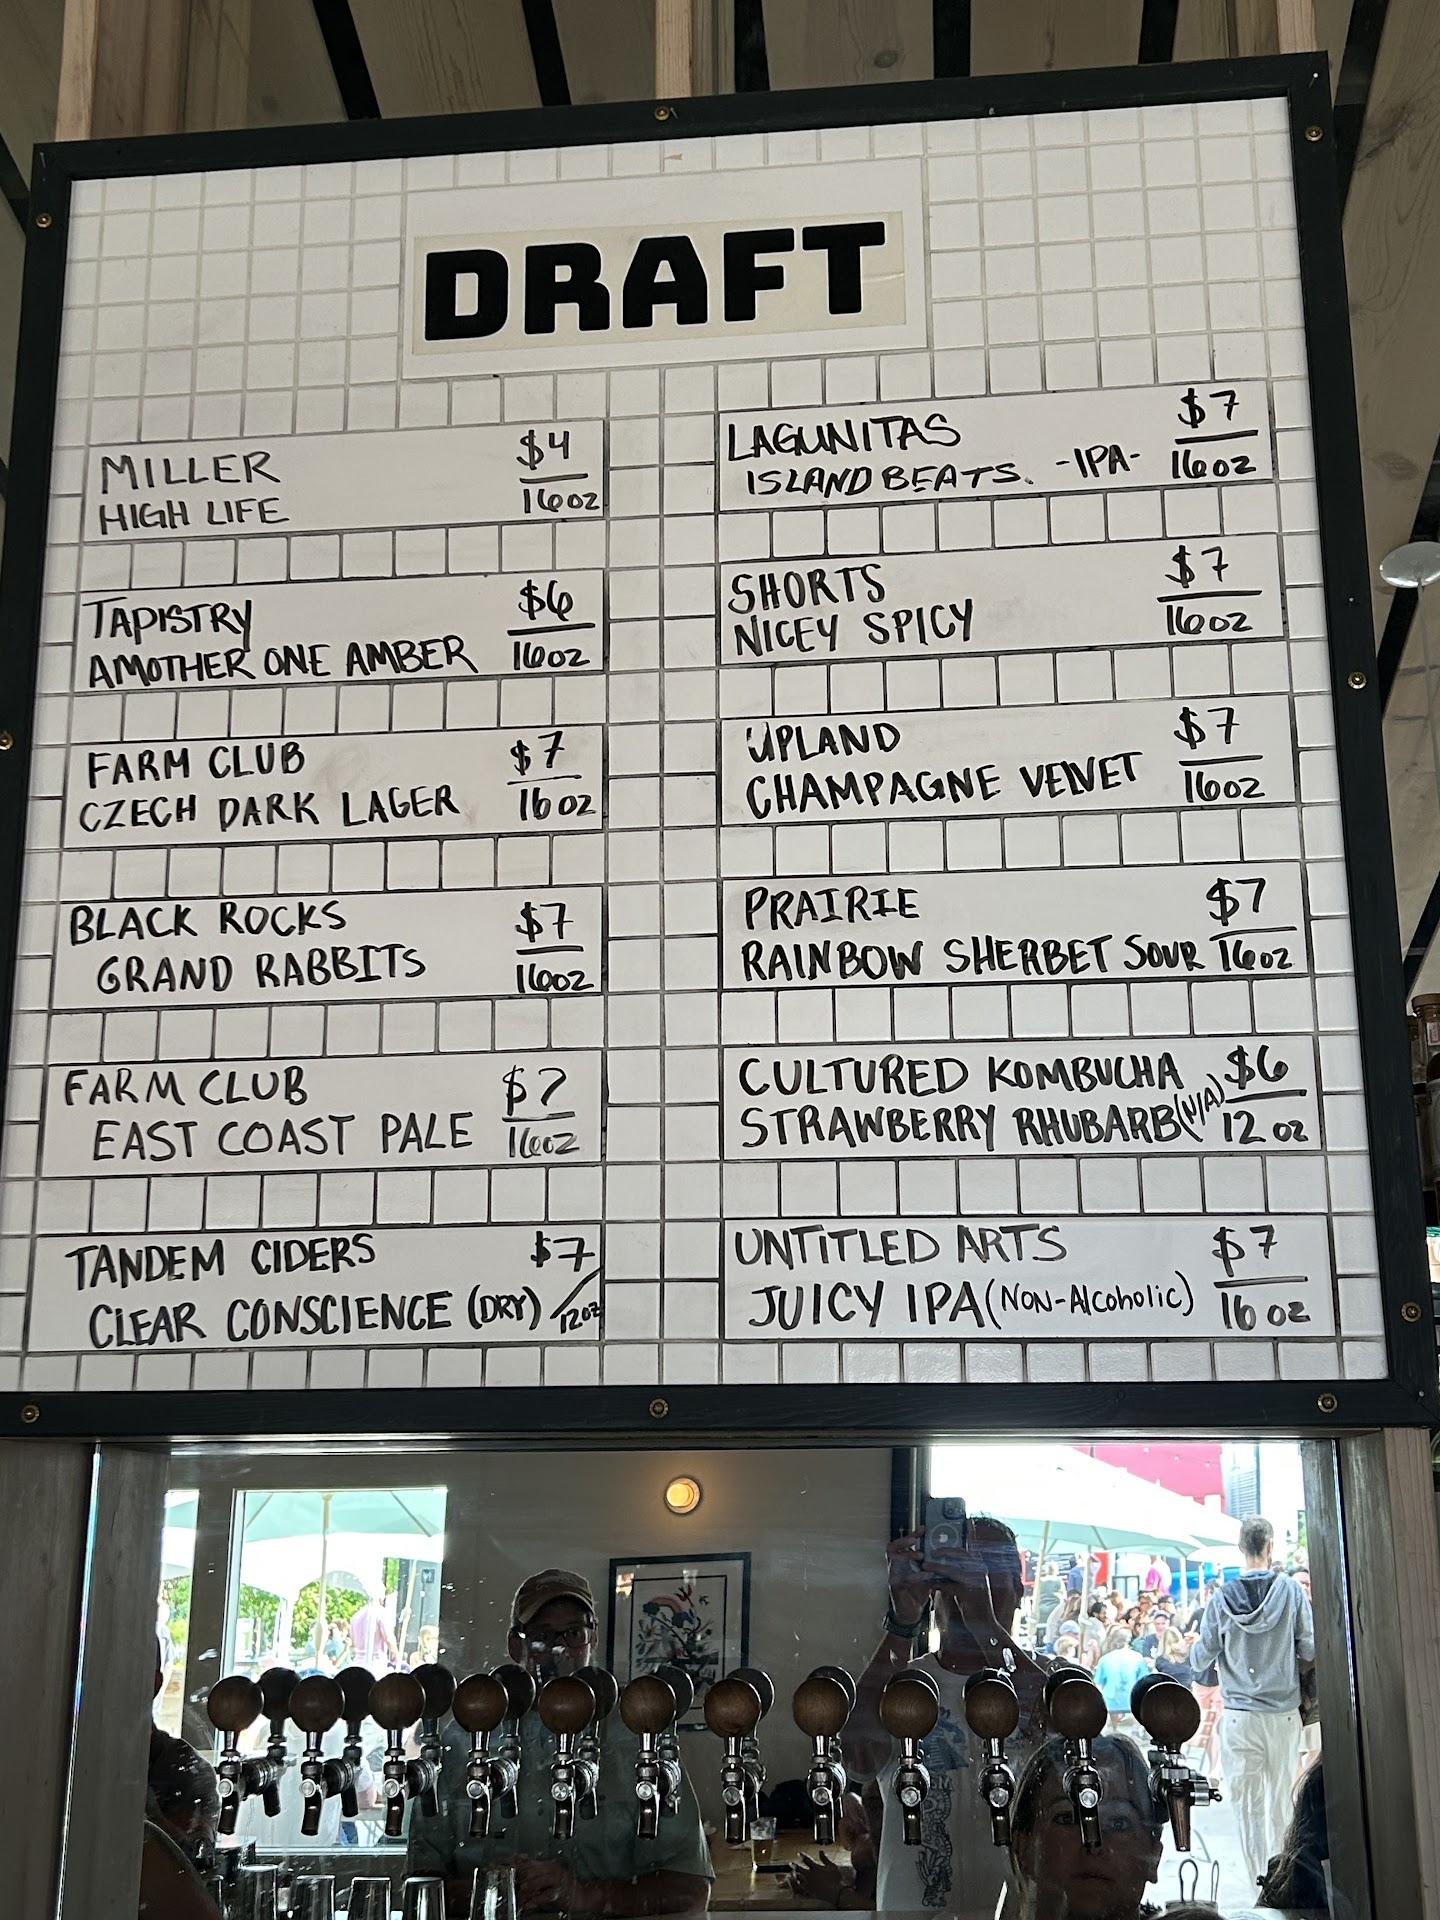 DRAFT
MILLER $4
HIGH LIFE 16oz
TAPISTRY $6
AMOTHER ONE AMBER 16oz
FARM CLUB $7
CZECH DARK LAGER 16oz
BLACK ROCKS $7
GRAND RABBITS 16oz
FARM CLUB $7
EAST COAST PALE 16oz
TANDEM CIDERS $7
CLEAR CONSCIENCE (DRY) 12oz
LAGUNITAS $7
ISLAND BEATS. -IPA- 16oz
SHORTS $7
NICEY SPICY 16oz
UPLAND $7
CHAMPAGNE VELVET 16oz
PRAIRIE $7
RAINBOW SHERBET SOUR 16oz
CULTURED KOMBUCHA $6
STRAWBERRY RHUBARB (N/A) 12oz
UNTITLED ARTS $7
JUICY IPA (NON-Alcoholic) 16oz